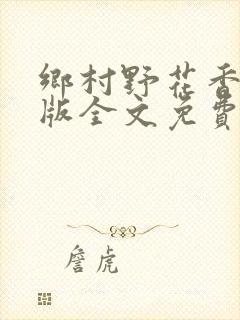 鄉村野花香
版全文免費
詹虎